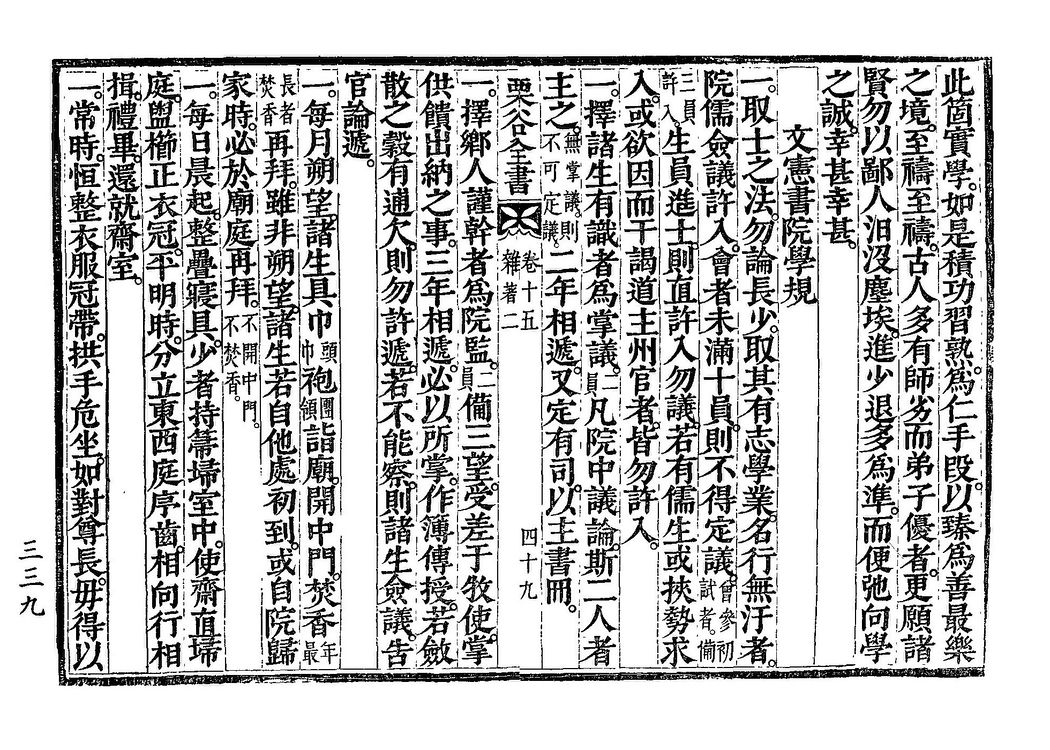 此箇實學。如是積功習熟。爲仁手段。以臻爲善最樂
之境。至禱至禱。古人多有師劣而弟子優者。更願諸
賢勿以鄙人汨沒塵埃。進少退多爲準。而便弛向學
之誠。幸甚幸甚。
文憲書院學規
一。取士之法。勿論長少。取其有志學業。名行無汙者。
院儒僉議許入。會者未滿十員。則不得定議。曾參初試者。備
二員許入。生員進士。則直許入勿議。若有儒生或挾勢求
入。或欲因而干謁道主州官者。皆勿許入。
一。擇諸生有識者爲掌議。二員凡院中議論。斯二人者
主之。無掌議。則不可定議。二年相遞。又定有司。以主書冊。
栗谷全書 卷十五 雜著二 四十九
一。擇鄕人謹幹者爲院監。二員備三望。受差于牧使。掌
供饋出納之事。三年相遞。必以所掌。作簿傳授。若斂
散之穀有通欠。則勿許遞。若不能察。則諸生僉議。告
官論遞。
一。每月朔望。諸生具巾頭巾袍團領詣廟。開中門。焚香年最
長者焚香再拜。雖非朔望。諸生若自他處初到。或自院歸
家時。必於廟庭再拜。不開中門。不焚香。
一。每日晨起。整疊寢具。少者持箒埽室中。使齋直埽
庭。盥櫛正衣冠。平明時。分立東西庭序齒。相向行相
揖。禮畢。還就齋室。
一。常時。恒整衣服冠帶。拱手危坐。如對尊長。毋得以
三三九